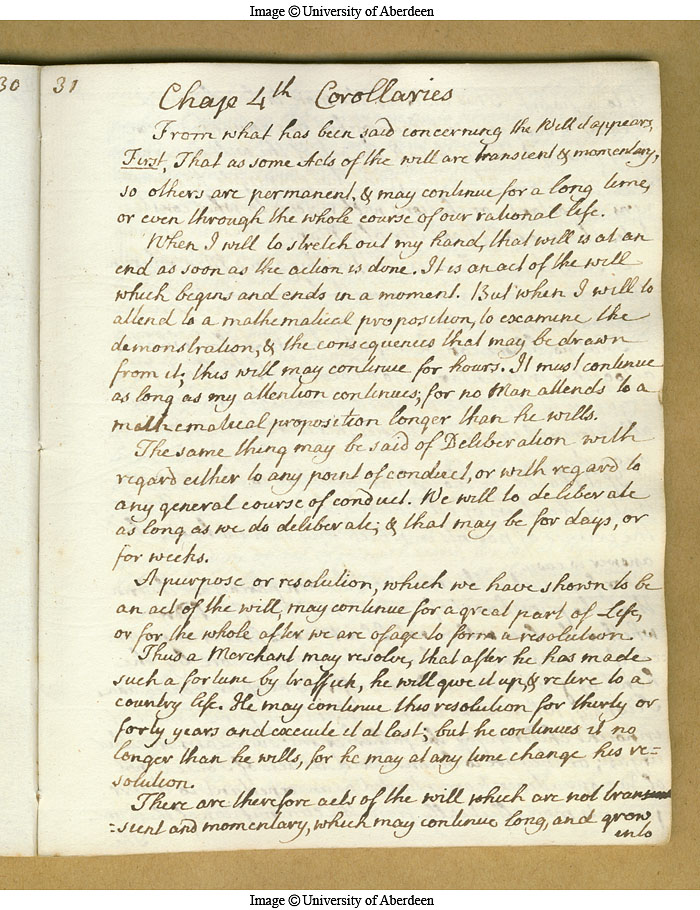 Image © University of Aberdeen
30
31
Chap 4th Corollaries
From what has been said concerning the Will it appears,
First, That as some Acts of the will are transient & momentary,
so others are permanent, & may continue for a long time,
or even through the whole course of our rational life.
When I will to stretch out my hand, that will is at an
end as soon as the action is done. It is an act of the will
which begins and ends in a moment. But when I will to
attend to a mathematical proposition, to examine the
demonstration, & the consequences that may be drawn
from it; this will may continue for hours. It must continue
as long as my attention continues; for no Man attends to a
mathematical proposition longer than he wills.
The same thing may be said of Deliberation with
regard either to any point of conduct, or with regard to
any general course of conduct. We will to deliberate
as long as we do deliberate; & that may be for days, or
for weeks.
A purpose or resolution, which we have shown to be
an act of the will, may continue for a great part of Life,
or for the whole after we are of age to form a resolution.
Thus a Merchant may resolve, that after he has made
such a fortune by traffick, he will give it up, & retire to a
country life. He may continue this resolution for thirty or
forty years and execute it at last; but he continues it no
longer than he wills, for he may at any time change his re=
solution.
There are therefore acts of the will which are not tran
=sient and momentary, which may continue long, and grow
into
Image © University of Aberdeen